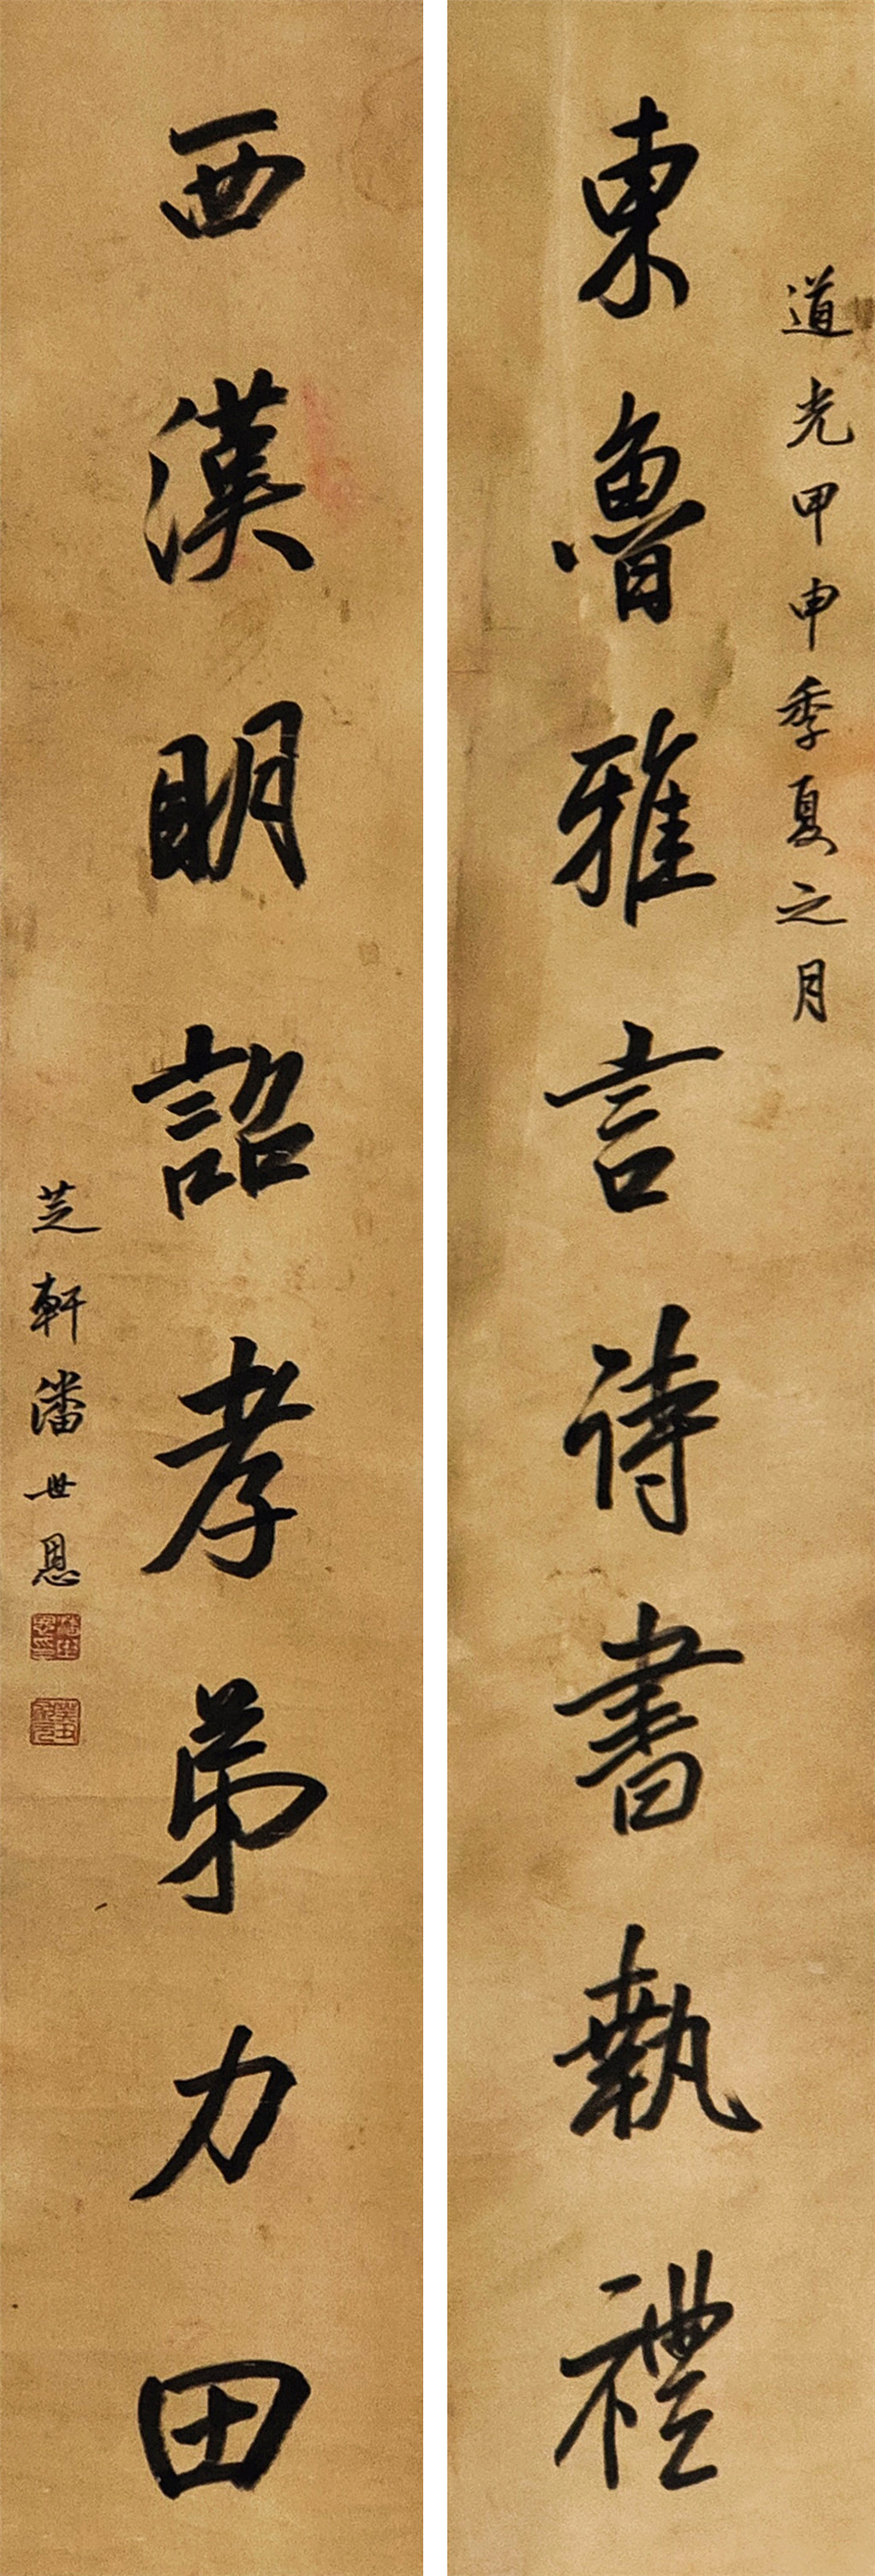 道光甲申季夏之月
東魯雅言詩書執禮
西漢明詔孝弟力田
芝軒潘世恩